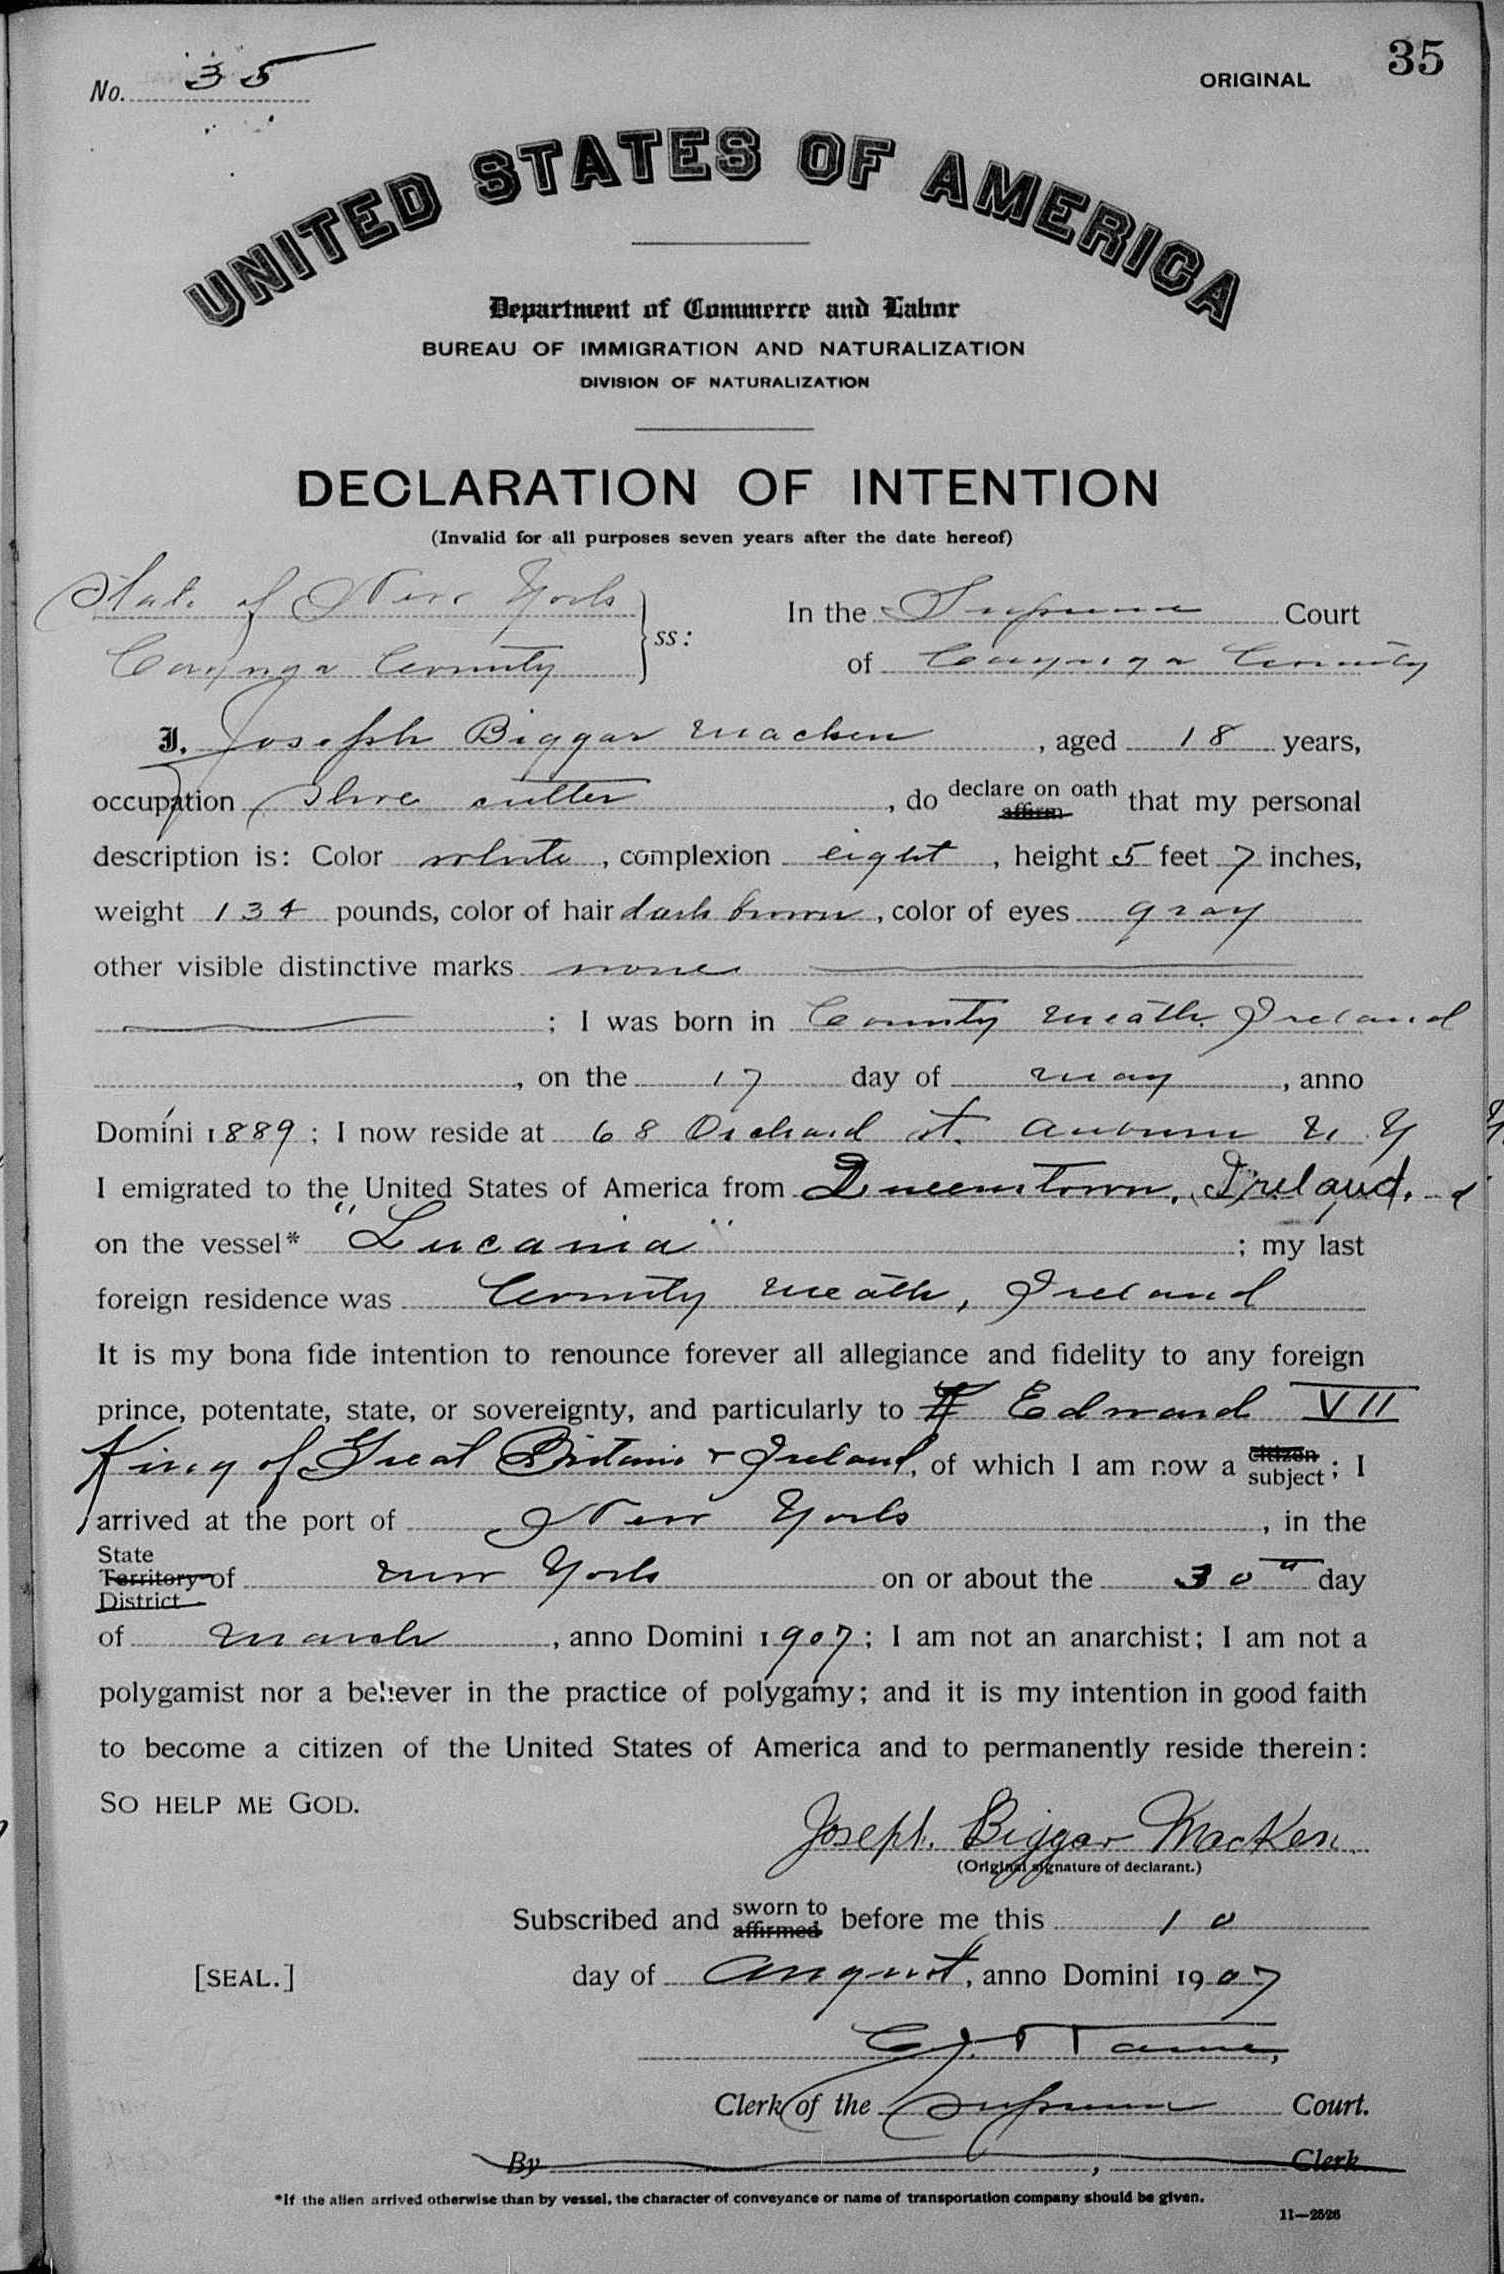 No. 35
ORIGINAL 35
UNITED STATES OF AMERICA
Department of Commerce and Labor
BUREAU OF IMMIGRATION AND NATURALIZATION
DIVISION OF NATURALIZATION
DECLARATION OF INTENTION
(Invalid for all purposes seven years after the date hereof)
State of New York
Cayuga County } ss:
In the Supreme Court
of Cayuga County
I, Joseph Biggar Macken, aged 18 years,
occupation Shoe cutter, do declare on oath affirm that my personal
description is: Color white, complexion light, height 5 feet 7 inches,
weight 134 pounds, color of hair dark brown, color of eyes gray
other visible distinctive marks none
; I was born in County Meath Ireland
, on the 17 day of May, anno
Domini 1889; I now reside at 68 Orchard st. Auburn N Y
I emigrated to the United States of America from Queenstown, Ireland.
on the vessel* "Lucania"; my last
foreign residence was County Meath, Ireland
It is my bona fide intention to renounce forever all allegiance and fidelity to any foreign
prince, potentate, state, or sovereignty, and particularly to Edward VII
King of Great Britain & Ireland, of which I am now a citizen subject; I
arrived at the port of New York, in the
State
Territory of New York on or about the 30" day
District
of March, anno Domini 1907; I am not an anarchist; I am not a
polygamist nor a believer in the practice of polygamy; and it is my intention in good faith
to become a citizen of the United States of America and to permanently reside therein:
SO HELP ME GOD.
Joseph Biggar Macken.
(Original signature of declarant.)
Subscribed and sworn to affirmed before me this 10
[SEAL.] day of August, anno Domini 1907
Clerk of the Supreme Court.
By , Clerk
*If the alien arrived otherwise than by vessel, the character of conveyance or name of transportation company should be given.
11—2526